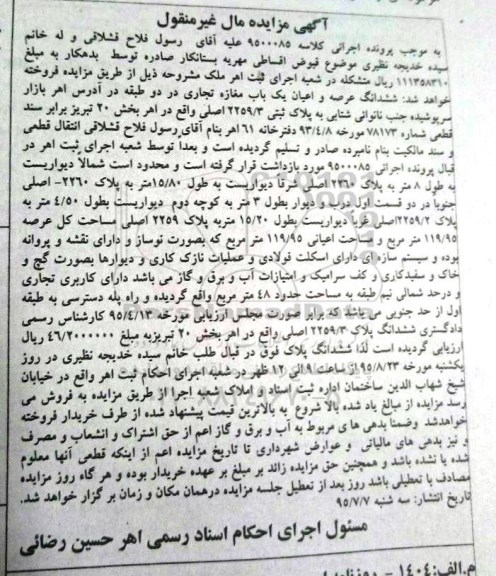 آگهی مزایده مال غیرمنقول
به موجب پرونده اجرائی کلاسه ۹۵۰۰۰۸۵ علیه آقای رسول فلاح قشلاقی و له خانم
سیده خدیجه نظیری موضوع قبوض اقساطی مهریه بستانکار صادره توسط بدهکار به مبلغ
۱۱۱۳۵۸۳۱۰ ریال متشکله در شعبه اجرای ثبت اهر ملک مشروحه ذیل از طریق مزایده فروخته
خواهد شد: ششدانگ عرصه و اعیان یک باب مغازه تجاری در دو طبقه در آدرس اهر بازار
سرپوشیده جنب نانوائی شتابی به پلاک ثبتی ۲۲۵۹/۳ اصلی واقع در اهر بخش ۲۰ تبریز برابر سند
قطعی شماره ۷۸۱۷۳ مورخه ۹۳/۴/۸ دفترخانه ۶۱ اهر بنام آقای رسول فلاح قشلاقی انتقال قطعی
و سند مالکیت بنام نامبرده صادر و تسلیم گردیده است و بعداً توسط شعبه اجرای ثبت اهر در
قبال پرونده اجرایی ۹۵۰۰۰۸۵ مورد بازداشت قرار گرفته است و محدود است شمالاً دیواریست
به طول ۸ متر به پلاک ۲۲۶۰ اصلی شرقاً دیواریست به طول ۱۵/۸۰ متر به پلاک ۲۲۶۰- اصلی
جنوبا در دو قسمت اول درب و دیوار بطول ۳ متر به کوچه دوم دیواریست بطول ۴/۵۰ متر به
پلاک ۲۲۵۹/۲ اصلی غرباً دیواریست بطول ۱۵/۲۰ متر به پلاک ۲۲۵۹ اصلی مساحت کل عرصه
۱۱۹/۹۵ متر مربع و مساحت اعیانی ۱۱۹/۹۵ متر مربع که بصورت نوساز و دارای نقشه و پروانه
بوده و سیستم سازه ای دارای اسکلت فولادی و عملیات نازک کاری و دیوارها بصورت گچ و
خاک و سفیدکاری و کف سرامیک و امتیازات آب و برق و گاز می باشد دارای کاربری تجاری
و درحد شمالی نیم طبقه به مساحت حدود ۴۸ متر مربع واقع گردیده و راه پله دسترسی به طبقه
اول از حد جنوبی می باشد که برابر صورت مجلس ارزیابی مورخه ۹۵/۴/۱۳ کارشناس رسمی
دادگستری ششدانگ پلاک ۲۲۵۹/۳ اصلی واقع در اهر بخش ۲۰ تبریز به مبلغ ۴۶/۲۰۰۰۰۰۰۰ ریال
ارزیابی گردیده است لذا ششدانگ پلاک فوق در قبال طلب خانم سیده خدیجه نظیری در روز
یکشنبه مورخه ۹۵/۸/۲۳ از ساعت ۹ الی ۱۲ ظهر در شعبه اجرای احکام ثبت اهر واقع در خیابان
شیخ شهاب الدین ساختمان اداره ثبت اسناد و املاک شعبه اجرا از طریق مزایده به فروش می
رسد مزایده از مبالغ یاد شده بالا شروع به بالاترین قیمت پیشنهاد شده از طرف خریدار فروخته
خواهدشد وضمنا بدهی های مربوط به آب و برق و گاز اعم از حق اشتراک و انشعاب و مصرف
و نیز بدهی های مالیاتی و عوارض شهرداری تا تاریخ مزایده اعم از اینکه قطعی آنها معلوم
شده یا نشده باشد و همچنین حق مزایده زائد بر مبلغ بر عهده خریدار بوده و هر گاه روز مزایده
مصادف با تعطیلی باشد روز بعد از تعطیل جلسه مزایده درهمان مکان و زمان بر گزار خواهد شد.
تاریخ انتشار: سه شنبه ۹۵/۷/۷
مسئول اجرای احکام اسناد رسمی اهر حسین رضائی
م.الف:۱۴۰۴